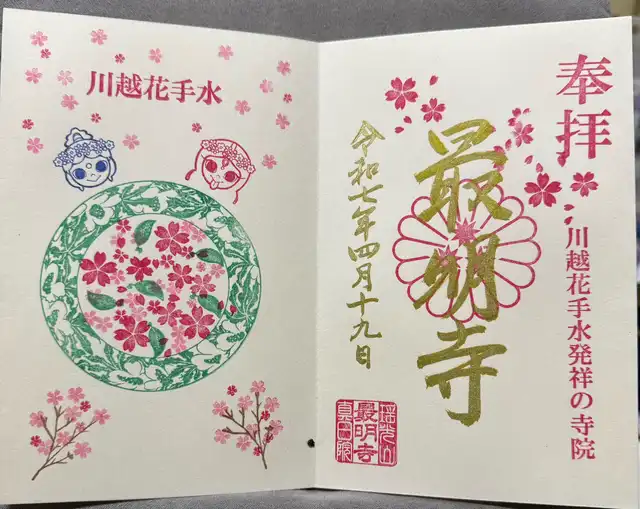 川越花手水
奉拝
川越花手水発祥の寺院
最明寺
令和七年四月十九日
瑶光山
最明寺
真言院